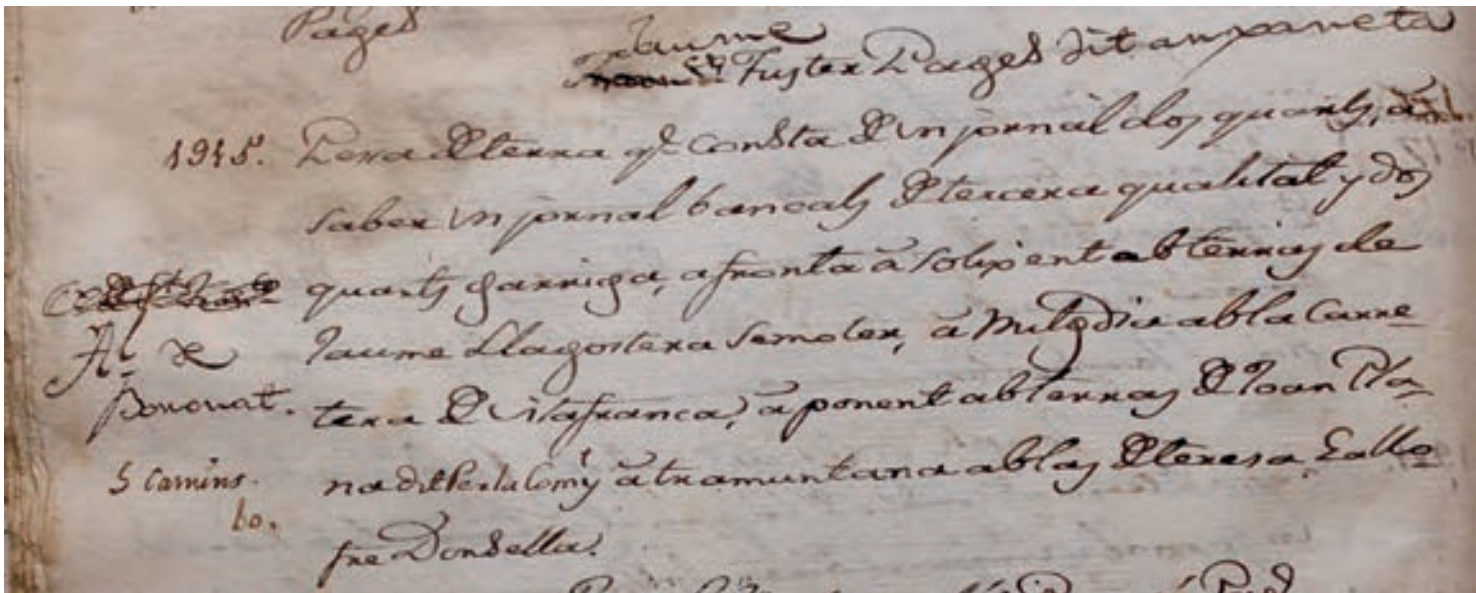 Pages
Jaume
Fuster Pages dit an paneta
1915. Pesa de terra q.e Consta de Un jornal dos quarts, a
saber Un jornal bancals de tercera qualitat y dos
quarts garriga, afronta a Solixent ab terras de
Jaume Llagostera Semoler, a Mitgdia ab la Carre-
A. de
tera de Vilafranca, a ponent ab terras de Joan Pla-
Bonouat.
na dit Pertalomy a tramuntana ab las de teresa Gallo-
5 Camins.
bo.
fre Donsella.